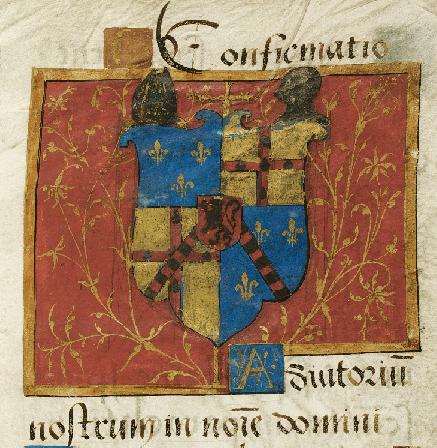 Confirmatio
Adiutoriū
nostrum in nōīe domini